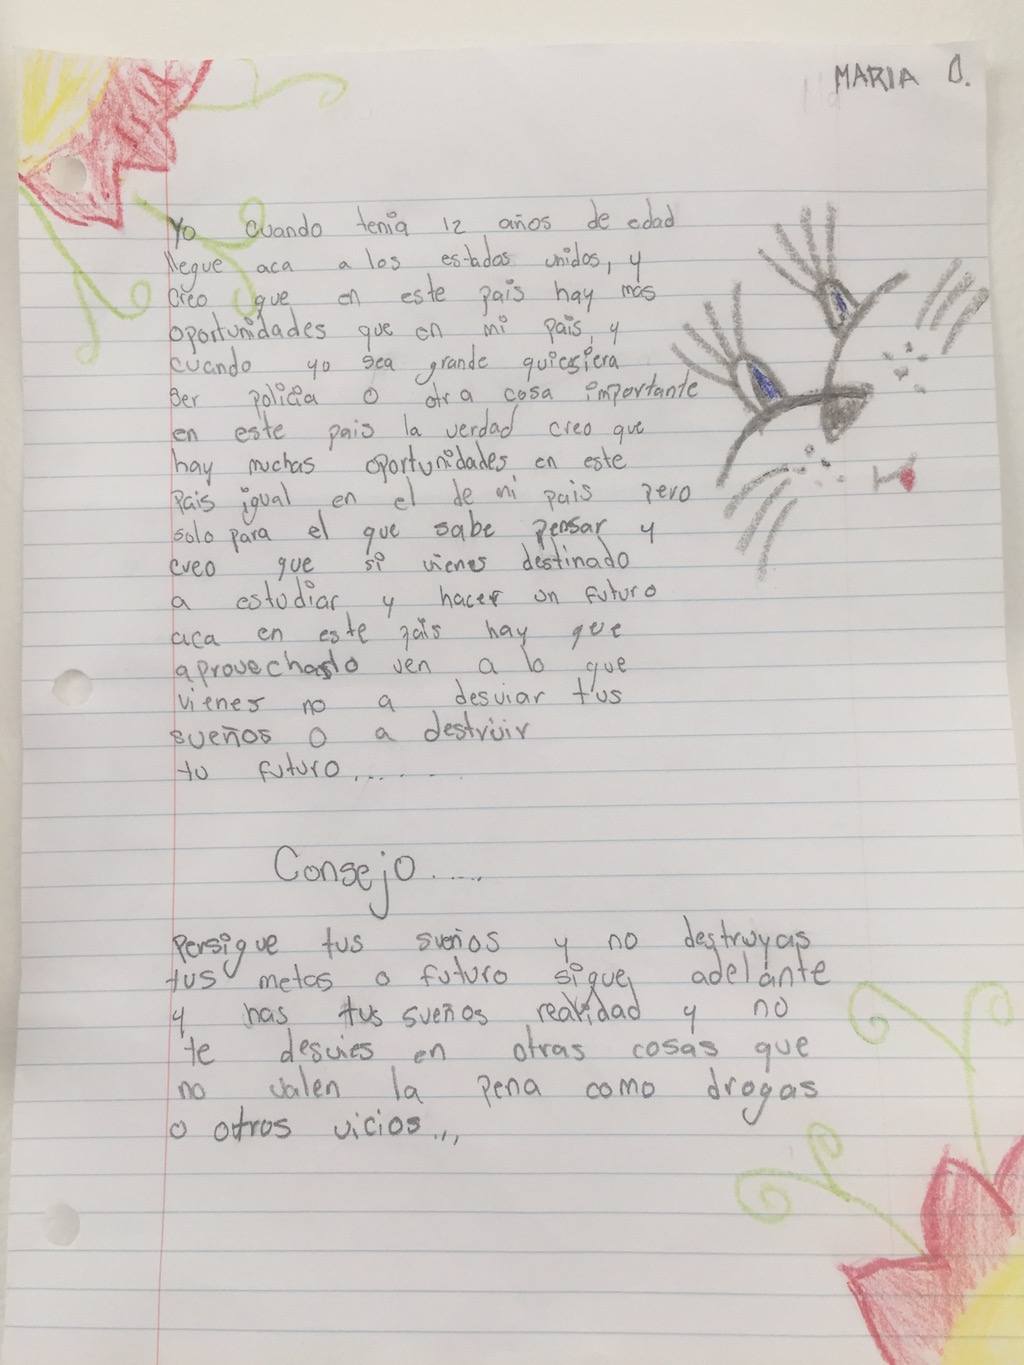 MARIA O.
Yo cuando tenia 12 años de edad
llegue aca a los estados unidos, y
creo que en este pais hay más
oportunidades que en mi pais, y
cuando yo sea grande quiesiera
ser policia o otra cosa importante
en este pais la verdad creo que
hay muchas oportunidades en este
pais igual en el de mi pais pero
solo para el que sabe pensar y
creo que si vienes destinado
a estudiar y hacer un futuro
aca en este pais hay que
aprovecharlo ven a lo que
vienes no a desviar tus
sueños o a destruir
tu futuro......
Consejo.....
Persigue tus sueños y no destruyas
tus metas o futuro sigue adelante
y has tus sueños realidad y no
te desvies en otras cosas que
no valen la pena como drogas
o otros vicios...